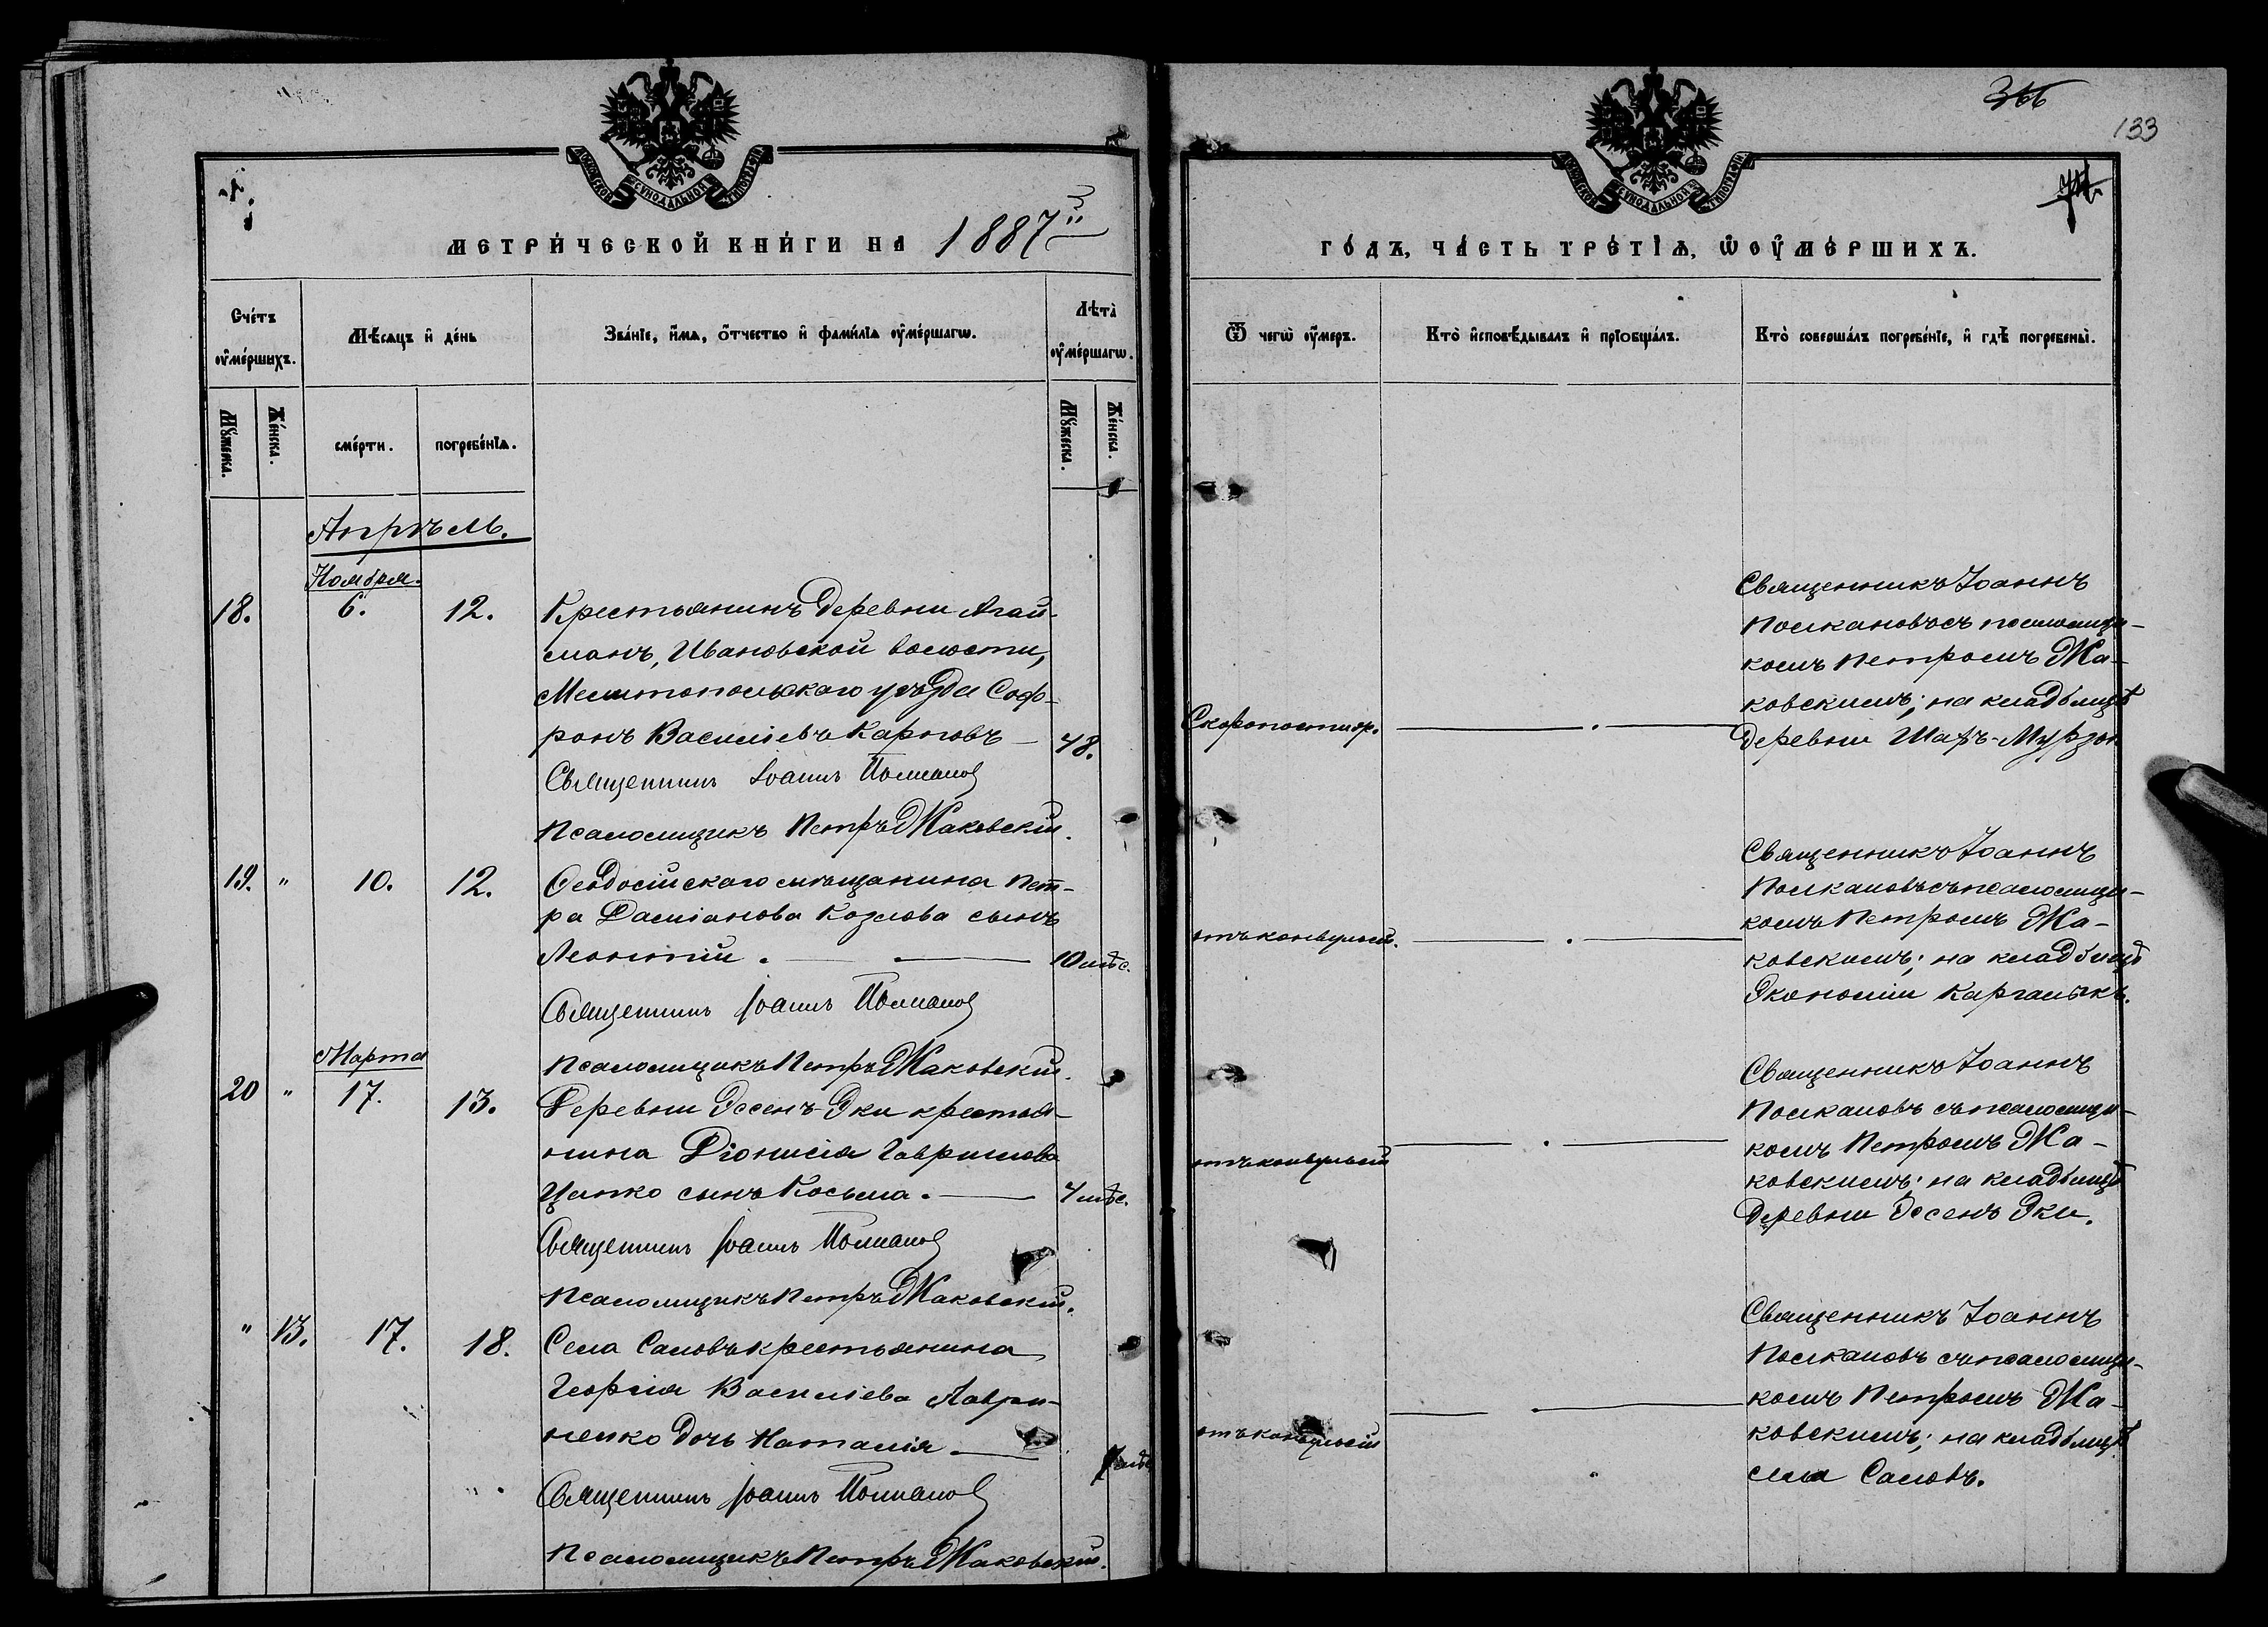 МОСКОВСКОЙ СѴНОДАЛЬНОЙ ТИПОГРАФІИ
МЕТРИЧЕСКОЙ КНИГИ НА 1887й
Счетъ оумершихъ.
Мѣсяцъ и день
Званіе, имя, отчество и фамилія оумершагѡ.
Лѣта оумершагѡ.
Мужеска.
Женска.
смерти.
погребенія.
Мужеска.
Женска.
Апрѣль.
Ноября.
18. 6. 12. Крестьянинъ деревни Агай-
манъ, Ивановской волости,
Мелитопольскаго уѣзда Соф-
ронъ Василіевъ Карповъ 48.
Священникъ Іоаннъ Полкановъ
Псаломщикъ Петръ Жаковскій.
19. " 10. 12. Ѳеодосійскаго мѣщанина Пет-
ра Даміанова Козлова сынъ
Леонтій. 10 мѣс.
Священникъ Іоаннъ Полкановъ
Псаломщикъ Петръ Жаковскій.
Марта
20 " 17. 13. Деревни Эссенъ-Эки крестья-
нина Діонисія Гаврилова
Цапко сынъ Косьма. 7 мѣс.
Священникъ Іоаннъ Полкановъ
Псаломщикъ Петръ Жаковскій.
" 13. 17. 18. Села Саловъ крестьянина
Георгія Василіева Лаври-
ненко дочь Наталія. мѣс
Священникъ Іоаннъ Полкановъ
Псаломщикъ Петръ Жаковскій.
366
133
МОСКОВСКОЙ СѴНОДАЛЬНОЙ ТИПОГРАФІИ
ГОДЪ, ЧАСТЬ ТРЕТІЯ, Ѡ ОУМЕРШИХЪ.
Ѿ чегѡ оумеръ.
Кто исповѣдывалъ и пріобщалъ.
Кто совершалъ погребеніе, и гдѣ погребены.
Священникъ Іоаннъ
Полкановъ съ псаломщи-
комъ Петромъ Жа-
ковскимъ; на кладбищѣ
Скоропостиж. деревни Шагъ-Мурза
Священникъ Іоаннъ
Полкановъ съ псаломщи-
отъ конвульсій. комъ Петромъ Жа-
ковскимъ; на кладбищѣ
Экономіи Каргалыкъ.
Священникъ Іоаннъ
Полкановъ съ псаломщи-
отъ конвульсій комъ Петромъ Жа-
ковскимъ; на кладбищѣ
деревни Эссенъ Эки.
Священникъ Іоаннъ
Полкановъ съ псаломщи-
комъ Петромъ Жа-
отъ конвульсій ковскимъ; на кладбищѣ
села Саловъ.